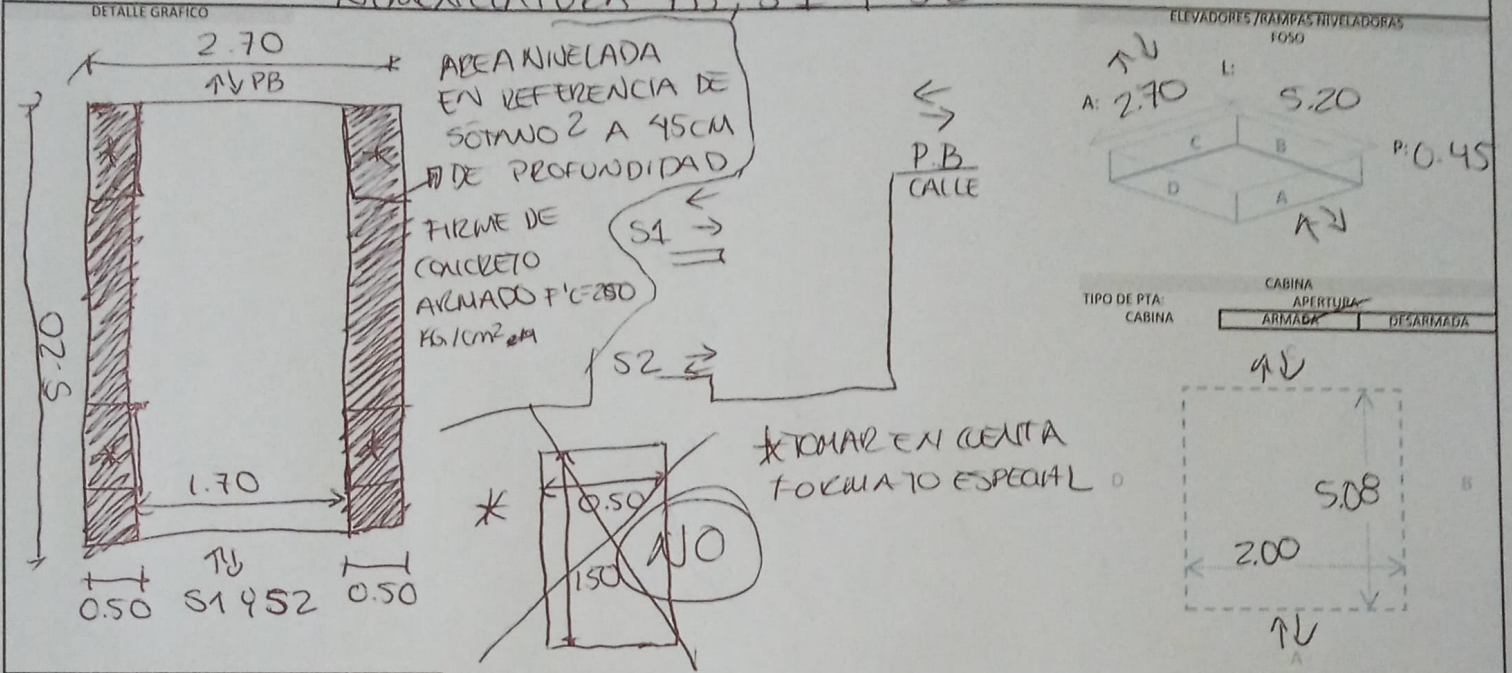 DETALLE GRAFICO
2.70
↑↓ PB
5.20
1.70
↑↓
0.50
S1 Y S2
0.50
AREA NIVELADA
EN REFERENCIA DE
SÓTANO 2 A 45CM
DE PROFUNDIDAD
FIRME DE
CONCRETO
ARMADO F'C=250
KG/cm²
S1
S2
P.B
CALLE
*
0.50
150
NO
*TOMAR EN CUENTA
FORMATO ESPECIAL
ELEVADORES /RAMPAS NIVELADORAS
FOSO
L:
A: 2.70
5.20
P: 0.45
C
B
D
A
CABINA
TIPO DE PTA:
APERTURA
CABINA
ARMADA
DESARMADA
C
D
B
5.08
2.00
A